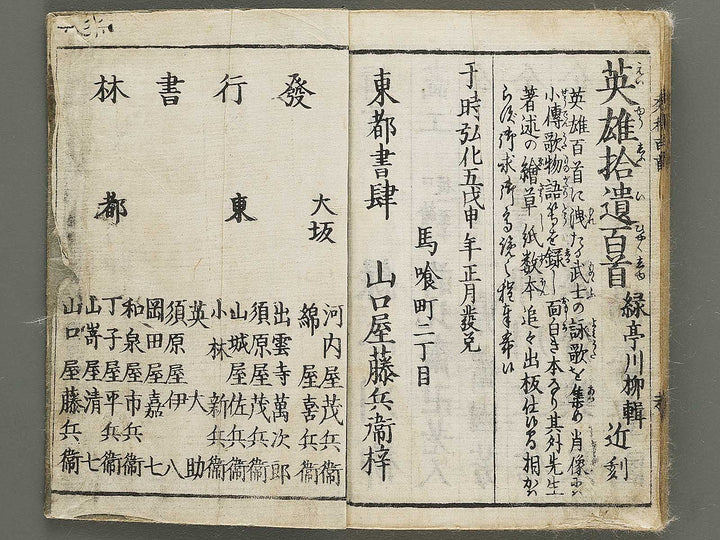 英雄拾遺百首 緑亭川柳輯 近刻
英雄百首に洩たる武士の詠歌を集め肖像
小傳歌物語等を録し面白き本なり其外先生
著述の繪草紙数本追々出板仕
御求御高覧
于時弘化五戊申年正月發兌
馬喰町二丁目
東都書肆 山口屋藤兵衞梓
發行書林
大坂
河内屋茂兵衞
綿屋喜兵衞
東都
出雲寺萬次郎
須原屋茂兵衞
山城屋佐兵衞
小林新兵衞
英大助
須原屋伊八
岡田屋嘉七
和泉屋市兵衞
丁子屋平兵衞
山嵜屋清七
山口屋藤兵衞